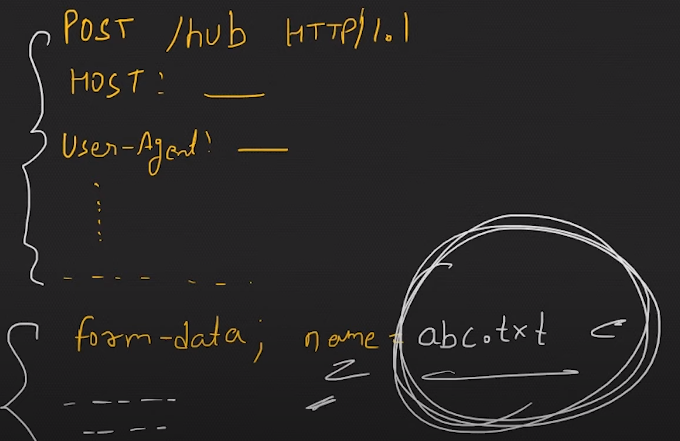 POST /hub HTTP/1.1
HOST: ___
User-Agent: ___
form-data; name= abc.txt